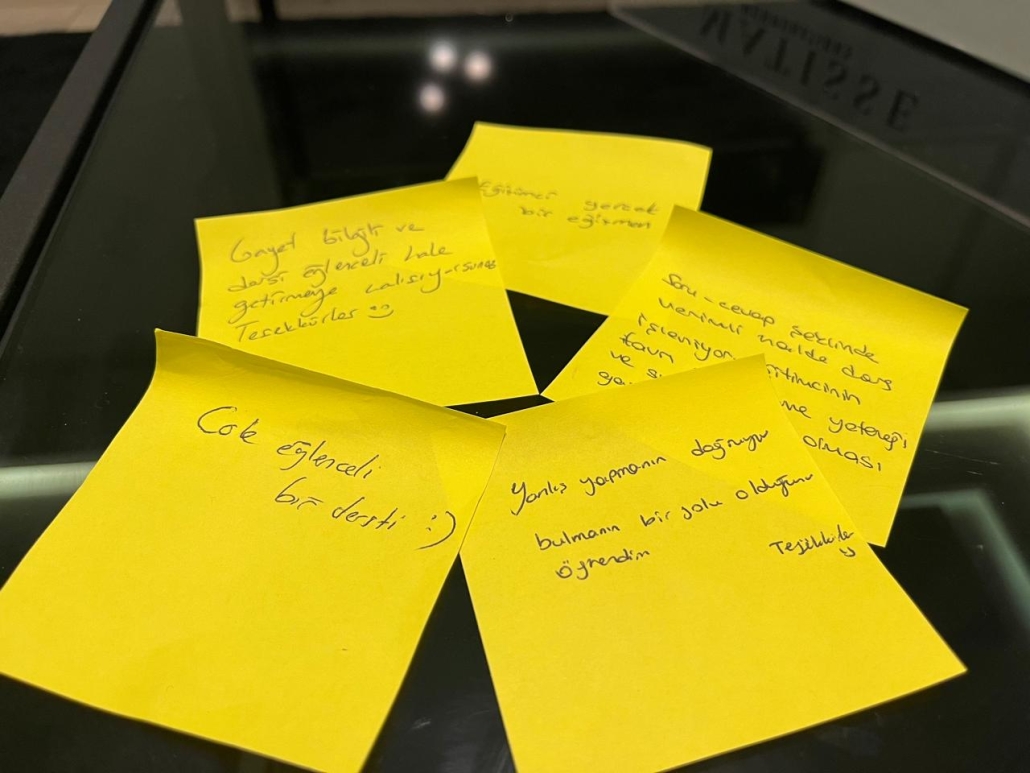 Eğitmen gerçek
bir eğitmen
Gayet bilgili ve
dersi eğlenceli hale
getirmeye çalışıyorsunuz
Teşekkürler :)
Soru-cevap şeklinde
verimli halde ders
işleniyor. itimcinin
tavrı
ve s me yeteneği
olması
Çok eğlenceli
bir dersti :)
Yanlış yapmanın doğruyu
bulmanın bir yolu olduğunu
öğrendim
Teşekkürler
MATISSE